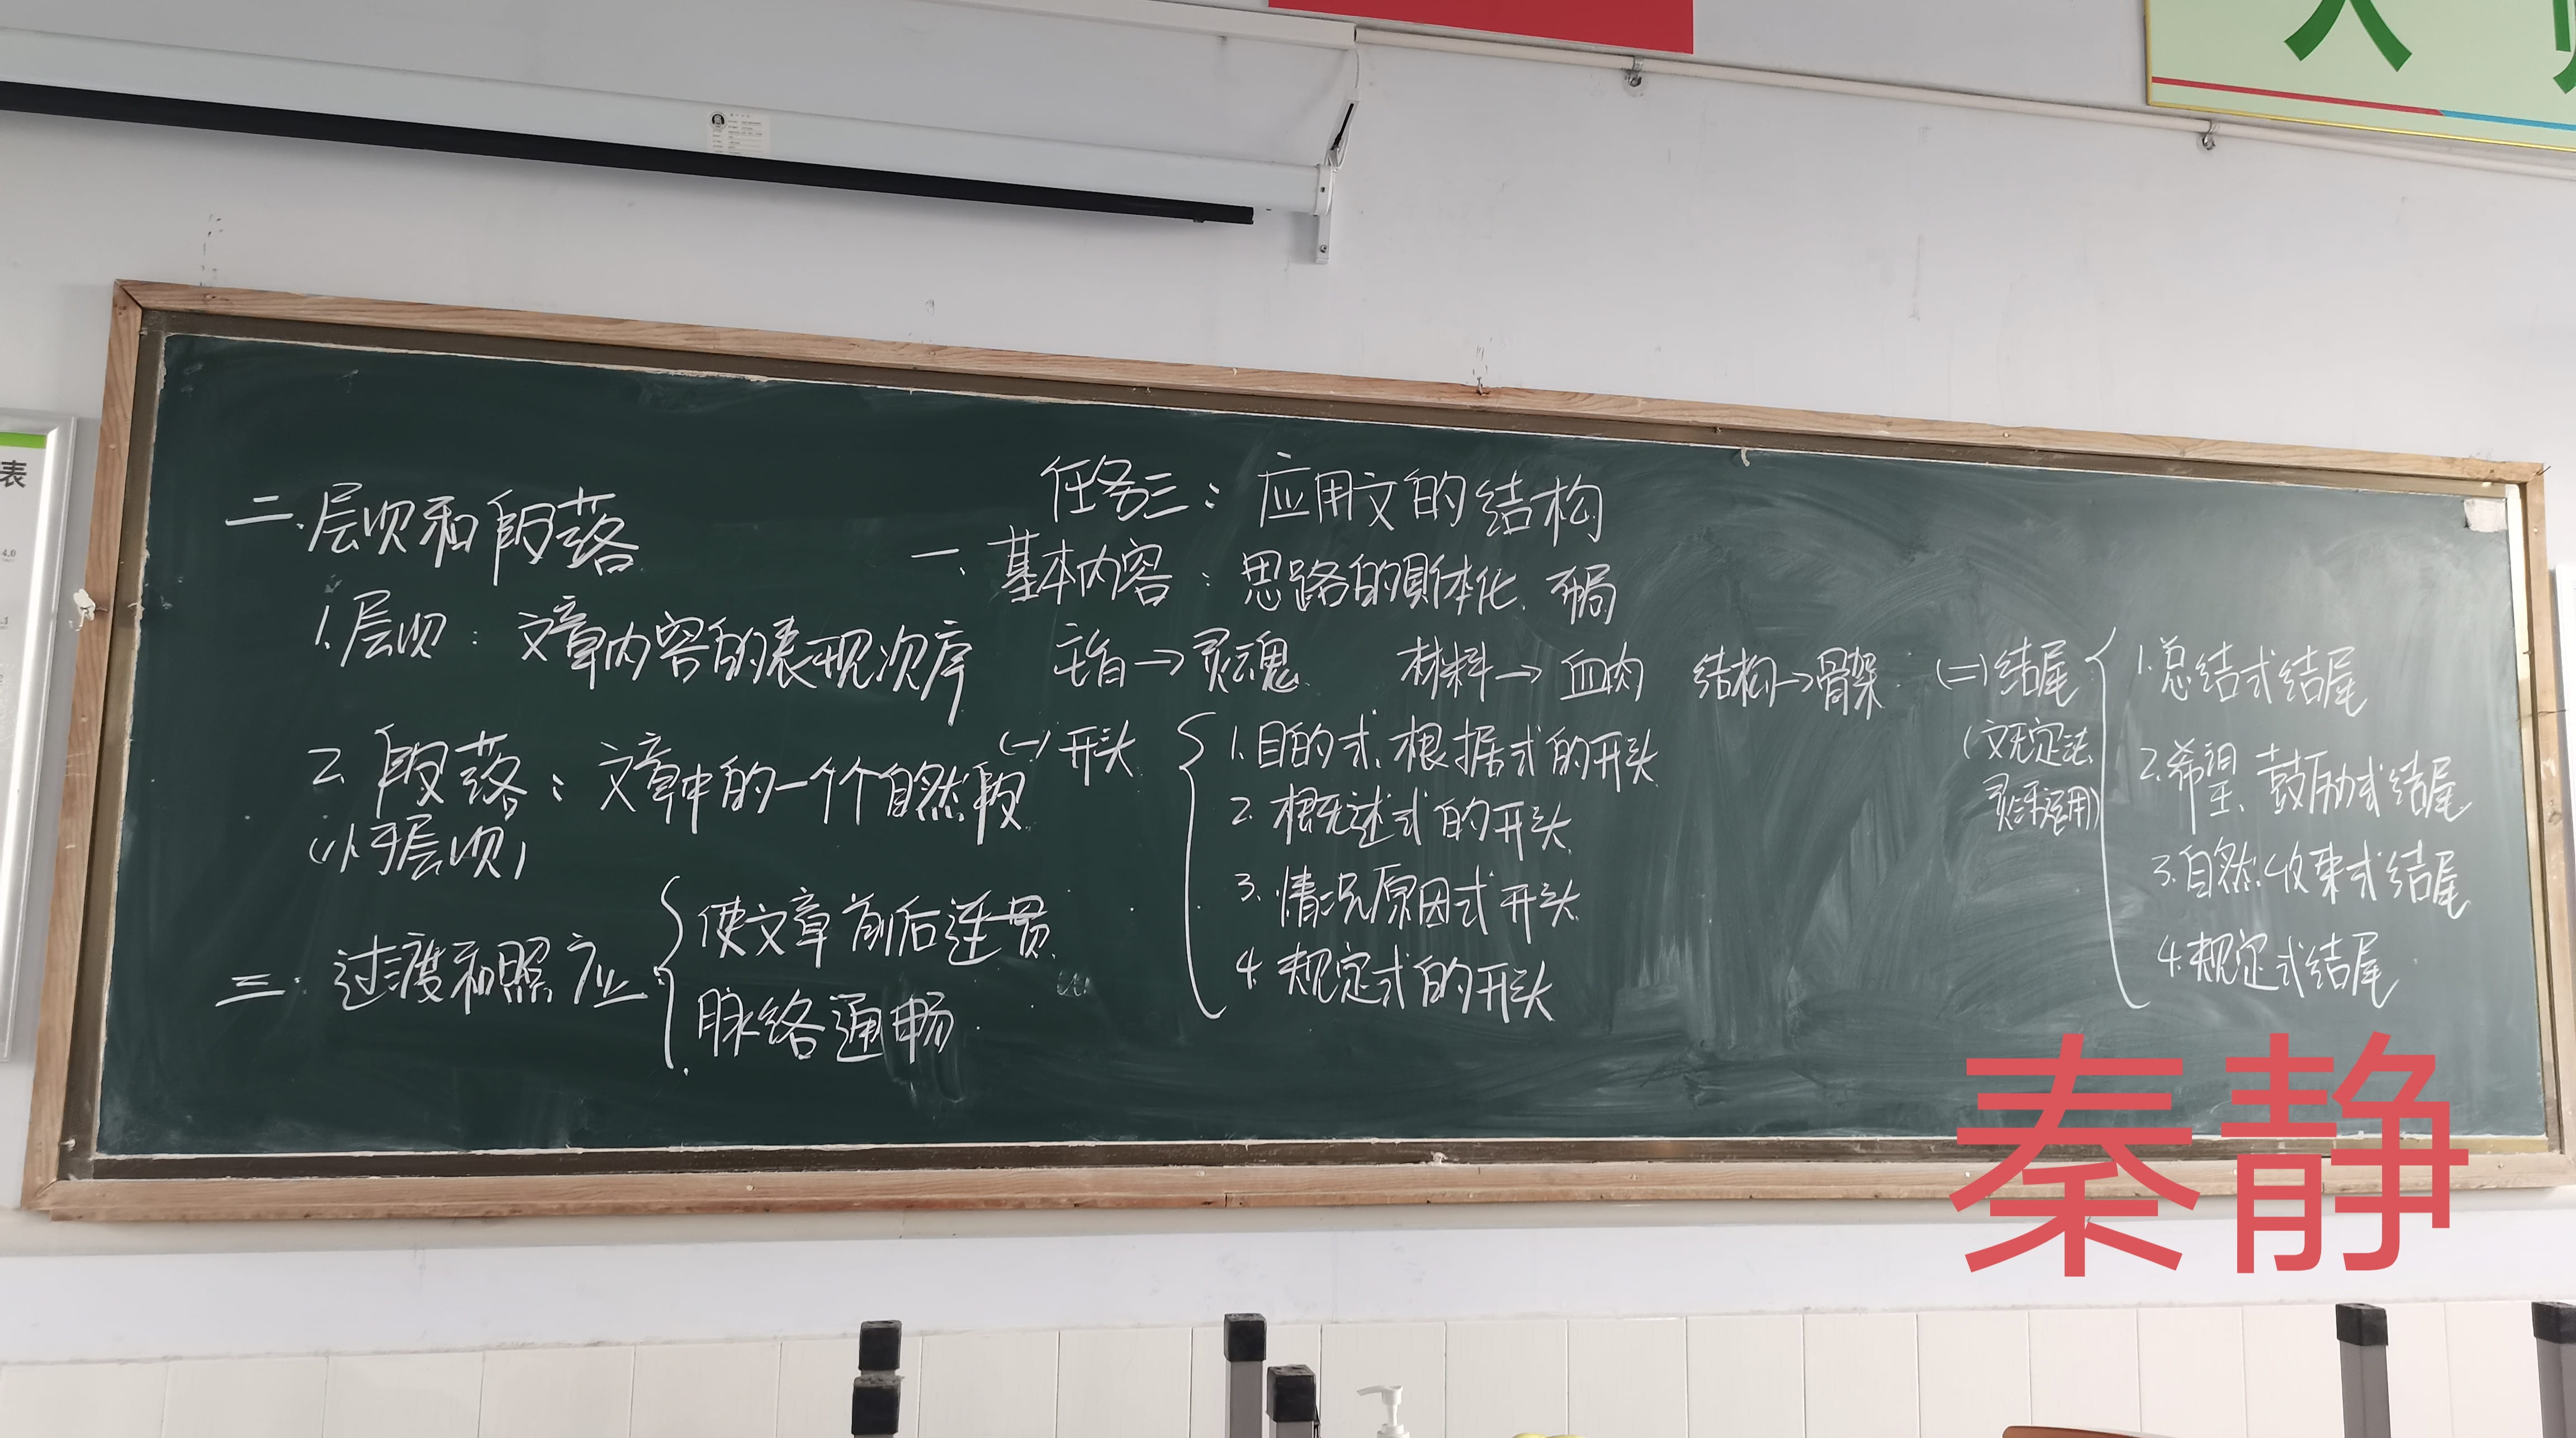 任务三：应用文的结构
一、基本内容：思路的具体化、布局
主旨→灵魂 材料→血肉 结构→骨架
(一)开头
1.目的式、根据式的开头
2.概述式的开头
3.情况原因式开头
4.规定式的开头
(二)结尾
(文无定法
灵活运用)
1.总结式结尾
2.希望、鼓励式结尾
3.自然收束式结尾
4.规定式结尾
二.层次和段落
1.层次：文章内容的表现次序
2.段落：文章中的一个个自然段
(小于层次)
三.过渡和照应
使文章前后连贯
脉络通畅.
秦静
表
4.0
人